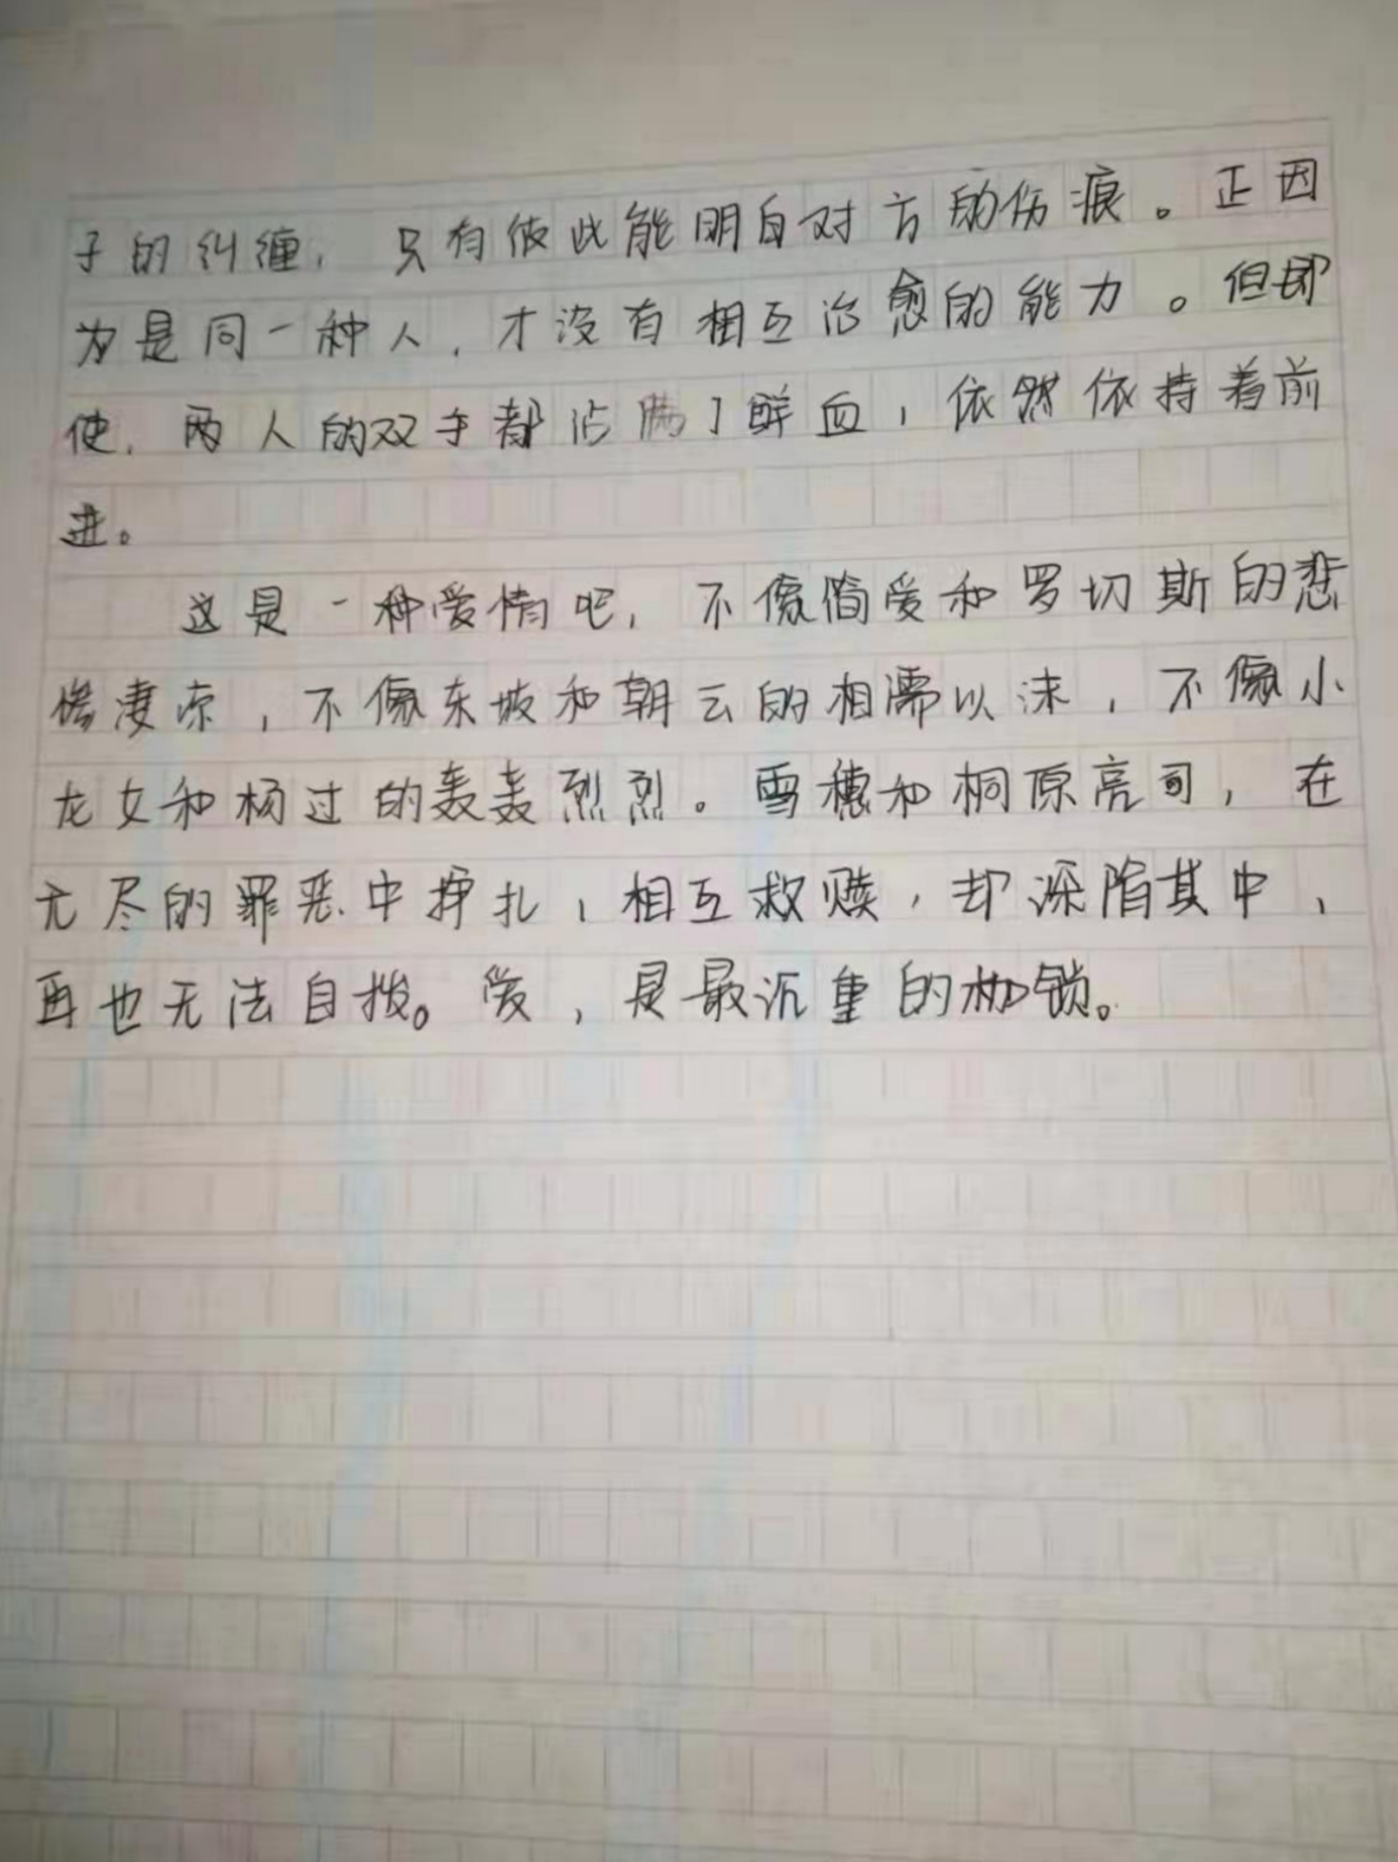 子的纠缠，只有彼此能明白对方的伤痕。正因
为是同一种人，才没有相互治愈的能力。但即
使，两人的双手都沾满了鲜血，依然依持着前
进。
这是一种爱情吧，不像简爱和罗切斯的悲
惨凄凉，不像东坡和朝云的相濡以沫，不像小
龙女和杨过的轰轰烈烈。雪穗和桐原亮司，在
无尽的罪恶中挣扎，相互救赎，却深陷其中，
再也无法自拨。爱，是最沉重的枷锁。